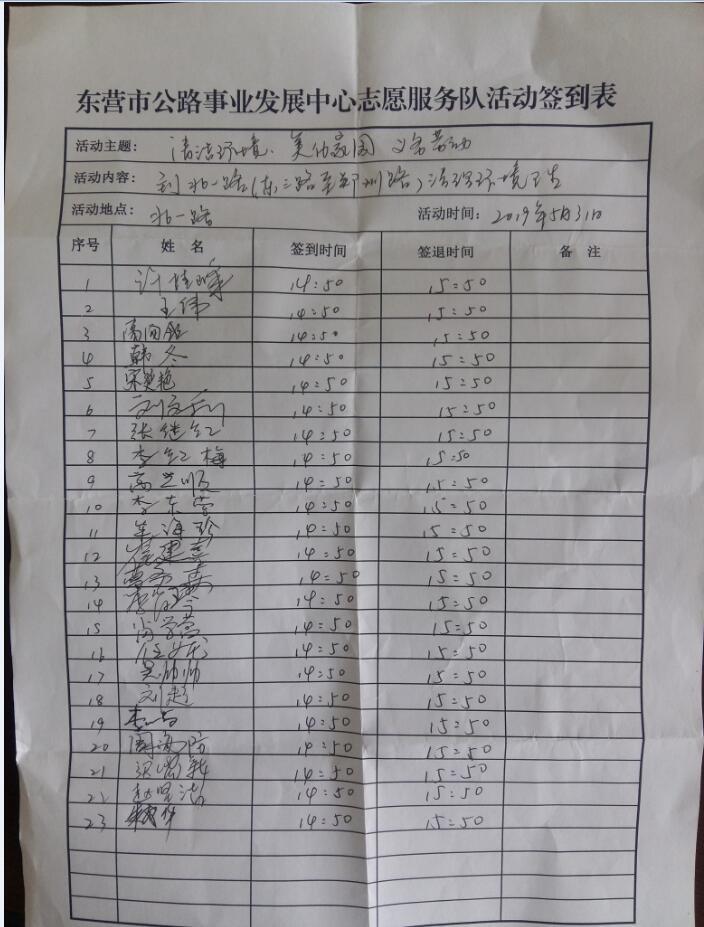 东营市公路事业发展中心志愿服务队活动签到表
活动主题: 清洁环境、美化家园 义务劳动
活动内容: 到北一路(东二路至郑州路)清理环境卫生
活动地点: 北一路 活动时间: 2019年5月31日
序号 姓名 签到时间 签退时间 备注
1 14:50 15:50
2 王伟 14:50 15:50
3 14:50 15:50
4 韩冬 14:50 15:50
5 宋艳艳 14:50 15:50
6 14:50 15:50
7 张继红 14:50 15:50
8 李红梅 14:50 15:50
9 高兰顺 14:50 15:50
10 李东营 14:50 15:50
11 牟海珍 14:50 15:50
12 14:50 15:50
13 14:50 15:50
14 14:50 15:50
15 尚学营 14:50 15:50
16 14:50 15:50
17 吴帅帅 14:50 15:50
18 刘超 14:50 15:50
19 14:50 15:50
20 14:50 15:50
21 14:50 15:50
22 14:50 15:50
23 14:50 15:50